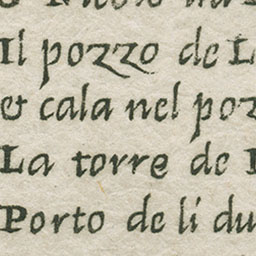 Il pozzo de L
& cala nel poz
La torre de
Porto de li du